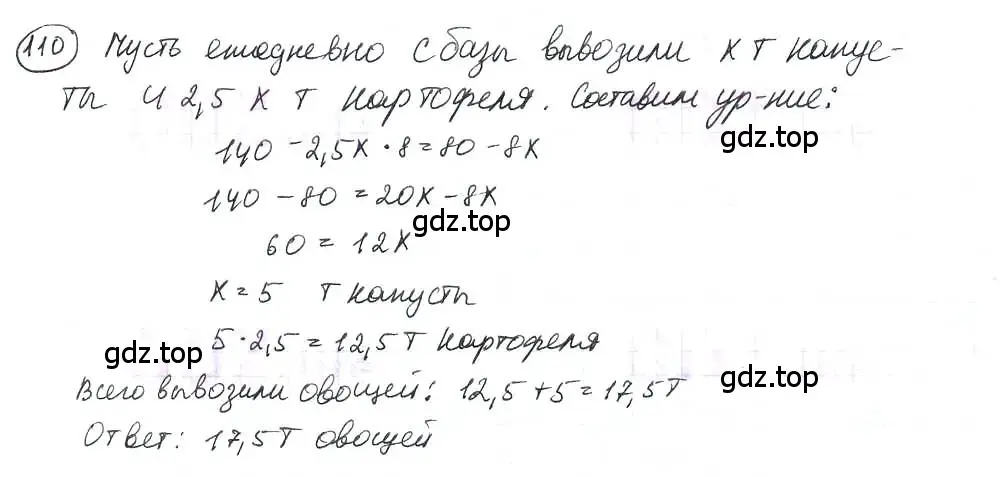 110 Пусть ежедневно с базы вывозили х т капус-
ты и 2,5 х т картофеля. Составим ур-ние:
140 - 2,5х · 8 = 80 - 8х
140 - 80 = 20х - 8х
60 = 12х
х = 5 т капусты
5 · 2,5 = 12,5 т картофеля
Всего вывозили овощей: 12,5 + 5 = 17,5 т
Ответ: 17,5 т овощей
gdz.top
gdz.top
gdz.top
gdz.top